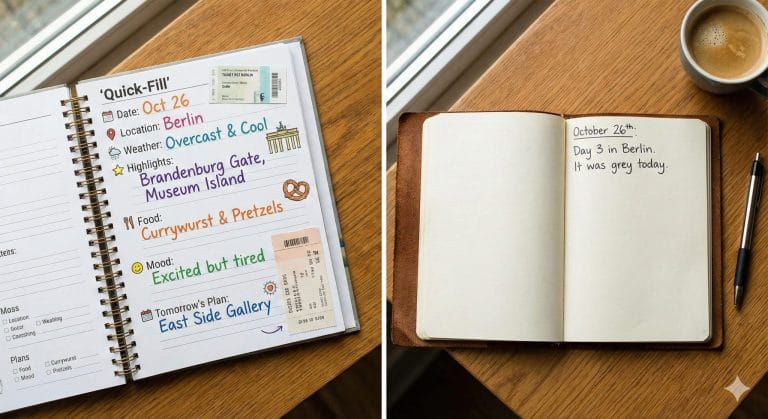 'Quick-Fill'
Date: Oct 26
Location: Berlin
Weather: Overcast & Cool
Highlights:
Brandenburg Gate,
Museum Island
Food:
Currywurst & Pretzels
Mood:
Excited but tired
Tomorrow's Plan:
East Side Gallery
Moss
Location
Weating
Plans
Food
Currywurst
Mood
Pretzels
October 26th.
Day 3 in Berlin.
It was grey today.